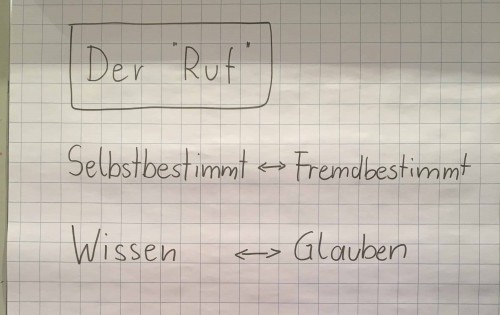 Der "Ruf"
Selbstbestimmt ↔ Fremdbestimmt
Wissen ↔ Glauben